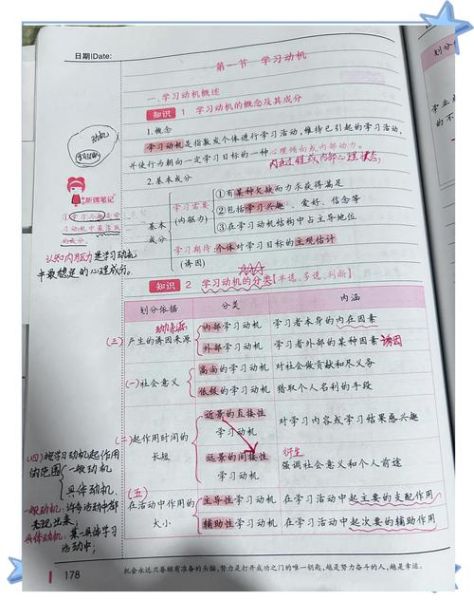 日期|Date:
第一节 学习动机
一、学习动机概述
知识 1 学习动机的概念及其成分
1.概念
动机
学习动机是指激发个体进行学习活动,维持已引起的学习活动,
并使行为朝向一定学习目标的一种心理倾向或内部动力。
2.基本成分
听课笔记
基本
成分
学习需要
(内驱力)
①有某种欠缺而力求获得满足
②包括学习兴趣、爱好、信念等
③在学习动机结构中占主导地位
学习期待
(诱因)
个体对学习目标的主观估计
认知内驱力是学习动机
中最稳定的心理成分。
知识 2 学习动机的分类【单选、多选、判断】
划分依据 分类 内涵
(三)产生的诱因来源
内部学习动机 学习者本身的内在因素
外部学习动机 学习者外部的某种因素 诱因
(一)社会意义
高尚的学习动机 对社会做贡献和尽义务
低级的学习动机 猎取个人名利的手段
(二)起作用时间的
长短
近景的直接性
学习动机
对学习内容或学习结果感兴趣
远景的间接性
学习动机
强调社会意义和个人前途
(五)
在活动中作用的
大小
主导性学习动机 在学习活动中起主要的支配作用
辅助性学习动机 在学习活动中起次要的辅助作用
(四)按学习动机起作用
的范围
一般动机
具体动机
178
机会永远只眷顾有准备的头脑,努力是打开成功之门的唯一钥匙,越是努力奋斗的人,越是幸运。